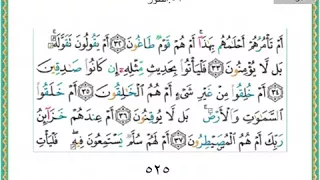 أَمْ تَأْمُرُهُمْ أَحْلَٰمُهُم بِهَٰذَآ ۚ أَمْ هُمْ قَوْمٌ طَاغُونَ ٣٢ أَمْ يَقُولُونَ تَقَوَّلَهُۥ ۚ
بَل لَّا يُؤْمِنُونَ ٣٣ فَلْيَأْتُوا۟ بِحَدِيثٍ مِّثْلِهِۦٓ إِن كَانُوا۟ صَٰدِقِينَ
٣٤ أَمْ خُلِقُوا۟ مِنْ غَيْرِ شَىْءٍ أَمْ هُمُ ٱلْخَٰلِقُونَ ٣٥ أَمْ خَلَقُوا۟
ٱلسَّمَٰوَٰتِ وَٱلْأَرْضَ ۚ بَل لَّا يُوقِنُونَ ٣٦ أَمْ عِندَهُمْ خَزَآئِنُ
رَبِّكَ أَمْ هُمُ ٱلْمُصَۣيْطِرُونَ ٣٧ أَمْ لَهُمْ سُلَّمٌ يَسْتَمِعُونَ فِيهِ ۖ فَلْيَأْتِ
٥٢٥